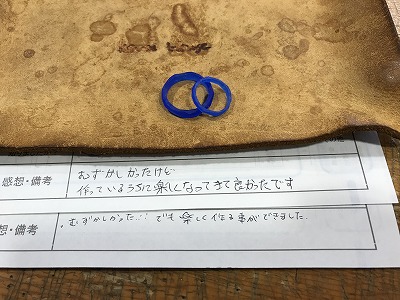 感想・備考
むずかしかったけど
作っているうちに楽しくなってきて良かったです
想・備考
むずかしかった... でも 楽しく 作る 事ができました.